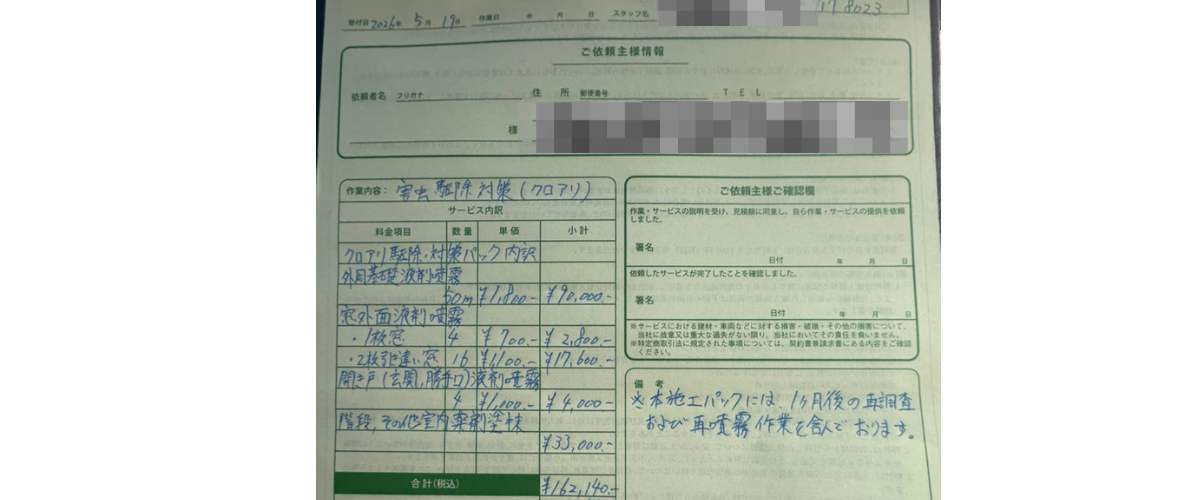 17 8023
受付日 2026年 5月 19日 作業日 年 月 日 スタッフ名
ご依頼主様情報
依頼者名 フリガナ 住 所 郵便番号 TEL
様
作業内容: 害虫駆除対策(クロアリ)
サービス内訳
料金項目 数量 単価 小計
クロアリ駆除・対策パック内訳
外周基礎液剤噴霧
50m ¥1,800.- ¥90,000.-
窓外面液剤噴霧
・1枚窓 4 ¥700.- ¥2,800.-
・2枚引違い窓 16 ¥1,100.- ¥17,600.-
開き戸(玄関,勝手口)液剤噴霧
4 ¥1,000.- ¥4,000.-
階段,その他室内薬剤塗抹
¥33,000.-
合計(税込) ¥162,140.-
ご依頼主様ご確認欄
作業・サービスの説明を受け、見積額に同意し、自ら作業・サービスの提供を依頼
しました。
署名
日付 年 月 日
依頼したサービスが完了したことを確認しました。
署名
日付 年 月 日
※サービスにおける建材・車両などに対する損害・破損・その他の損害について、
当社に故意又は重大な過失がない限り、当社においてその責任を負いません。
※特定商取引法に規定された事項については、契約書兼請求書にある内容をご確認
ください。
備 考
※本施工パックには、1ヶ月後の再調査
および再噴霧作業を含んでおります。